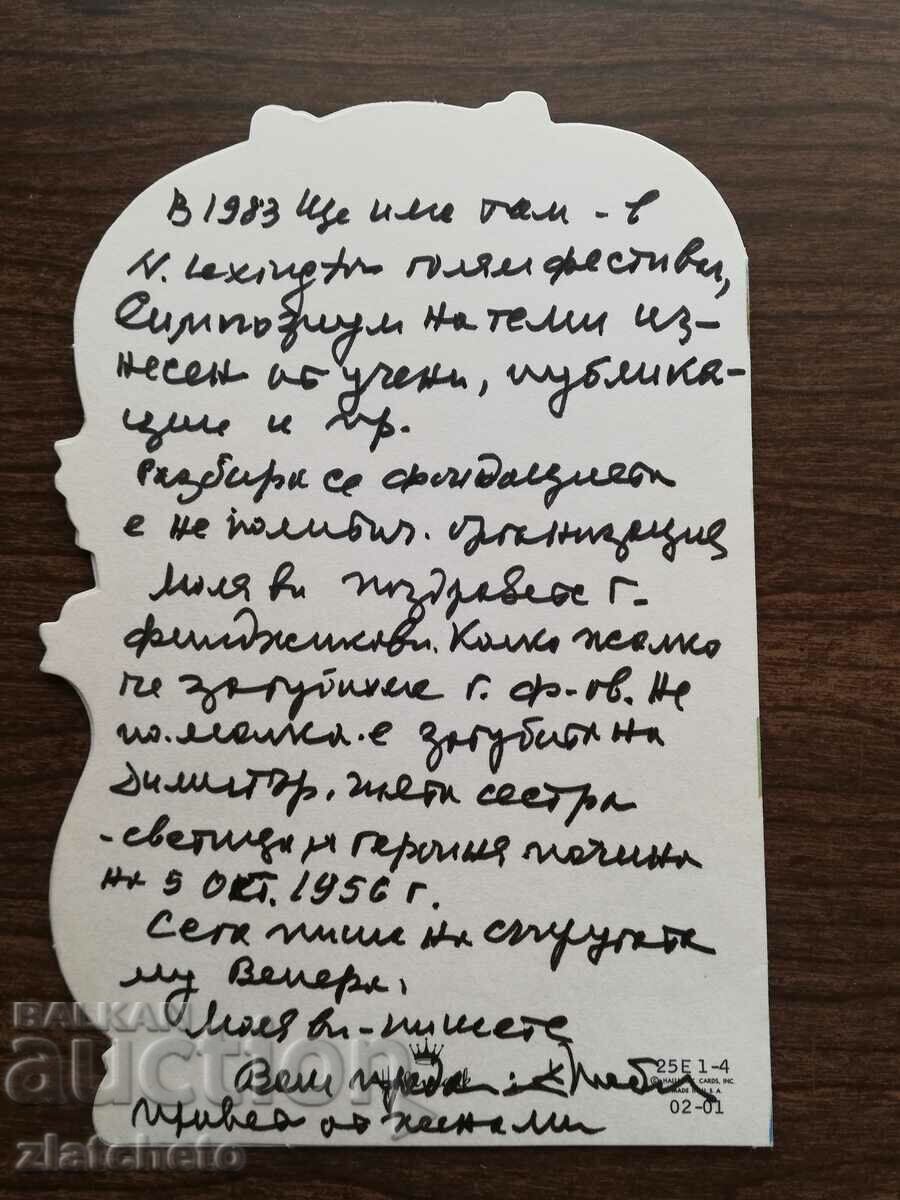 В 1983 ще има там - в
N. Lexington голям фестивал,
Симпозиум на теми из-
несен от учени, публика-
ции и пр.
Разбира се фондацията
е не политич. организация
Моля ви поздравете г.
Филджикови. Колко жалко
че загубихме г. Ф-ов. Не
по малка е загубата на
Димитър, чиято сестра
- светица и героиня почина
на 5 окт. 1956 г.
Сега пиша на съпругата
му Венера.
Моля ви - пишете
Ваш предан:
Привет от жена ми
25E 1-4
© HALLMARK CARDS, INC.
MADE IN U.S.A.
02-01
BALKAN
auction
zlatcheto